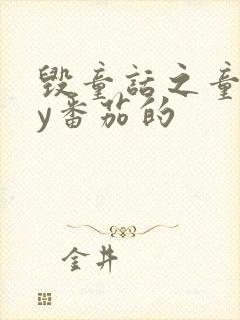 毁童话之童
y番茄的
金井